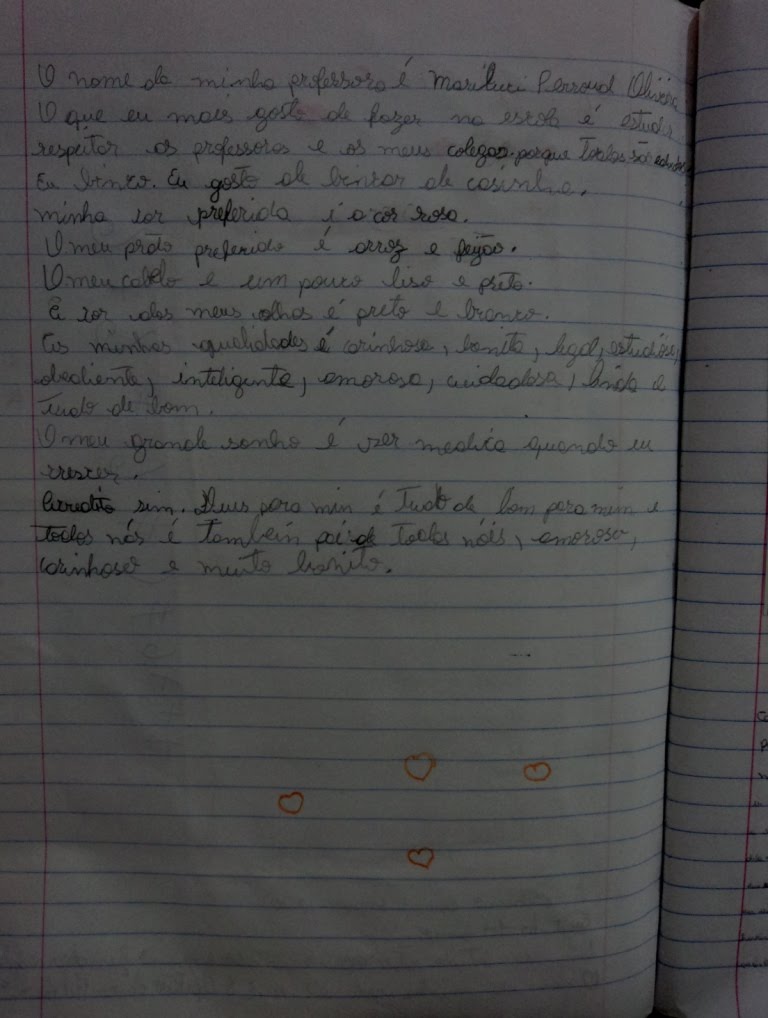 O nome da minha professora é Mariluci Perroud Oliveira
O que eu mais gosto de fazer na escola é estudar
respeitar os professores e os meus colegas. porque todos são
Eu brinco. Eu gosto de brincar de casinha.
minha cor preferida é a cor rosa.
O meu prato preferido é arroz e feijão.
O meu cabelo e um pouco liso e preto.
A cor dos meus olhos é preto e branco.
As minhas qualidades é carinhosa, bonita, legal, estudiosa,
obediente, inteligente, amorosa, cuidadosa, linda e
tudo de bom.
O meu grande sonho é ser medica quando eu
crescer.
Acredito sim. Deus para min é tudo de bom para mim e
todos nós é tambein pai de todos nóis, amoroso,
carinhoso e muito bonito.